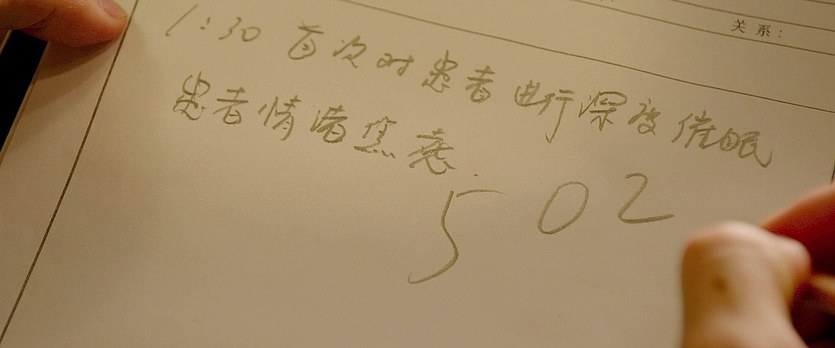 关系：
1:30 首次对患者进行深度催眠
患者情绪焦虑.
502